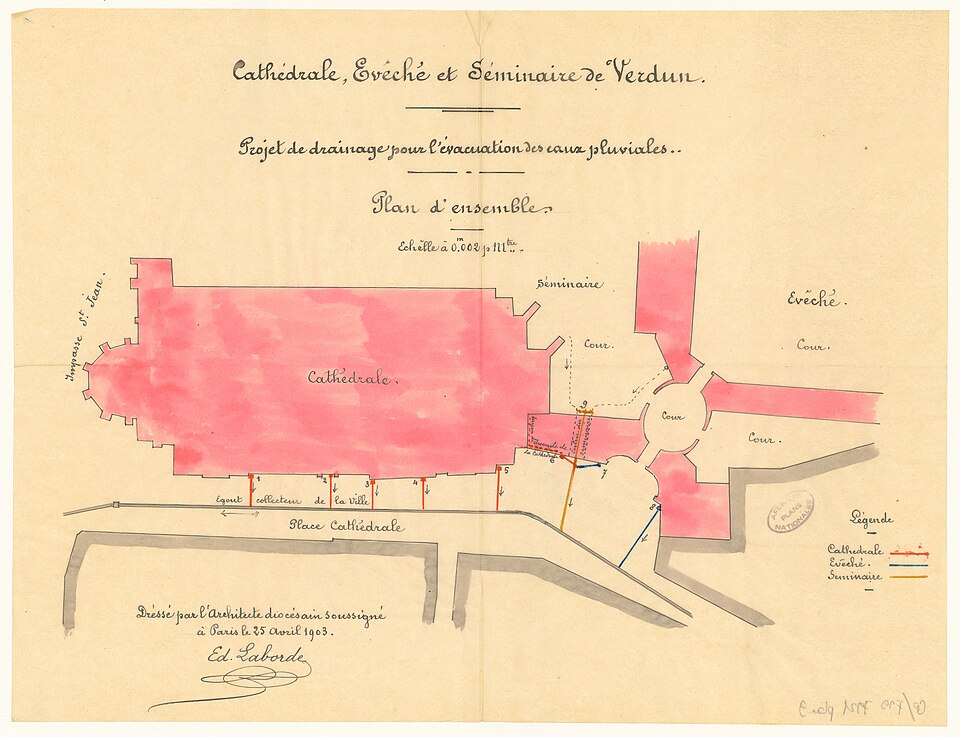 Cathédrale, Evêché et Séminaire de Verdun.
Projet de drainage pour l'évacuation des eaux pluviales..
Plan d'ensemble.
Echelle à 0.m002 p. M.tre
Impasse St Jean.
Séminaire
Evêché.
Cour.
Cour.
Cathédrale.
Cour
Cour.
9
la Cathédrale
6
7
5
1
2
3
4
8
Egout collecteur de la Ville
Place Cathédrale
PLANS
NATIONALES
Légende
Cathédrale
Evêché.
Séminaire
Dressé par l'Architecte diocésain soussigné
à Paris le 25 Avril 1903.
Ed. Laborde